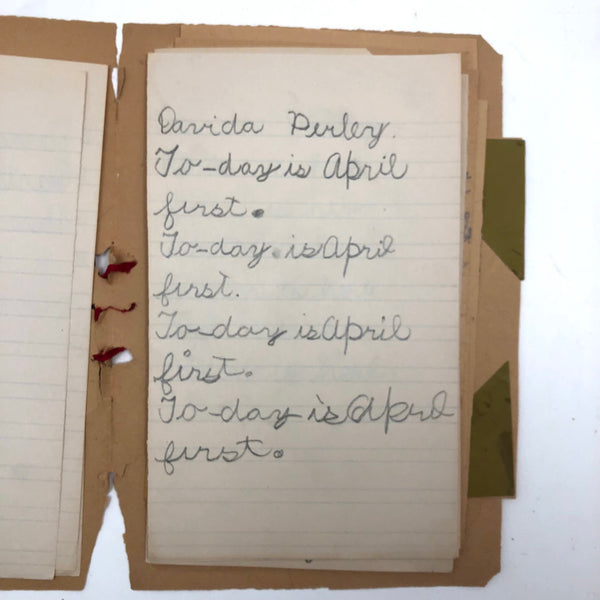 Davida Perley.
To-day is April
first.
To-day is April
first.
To-day is April
first.
To-day is April
first.